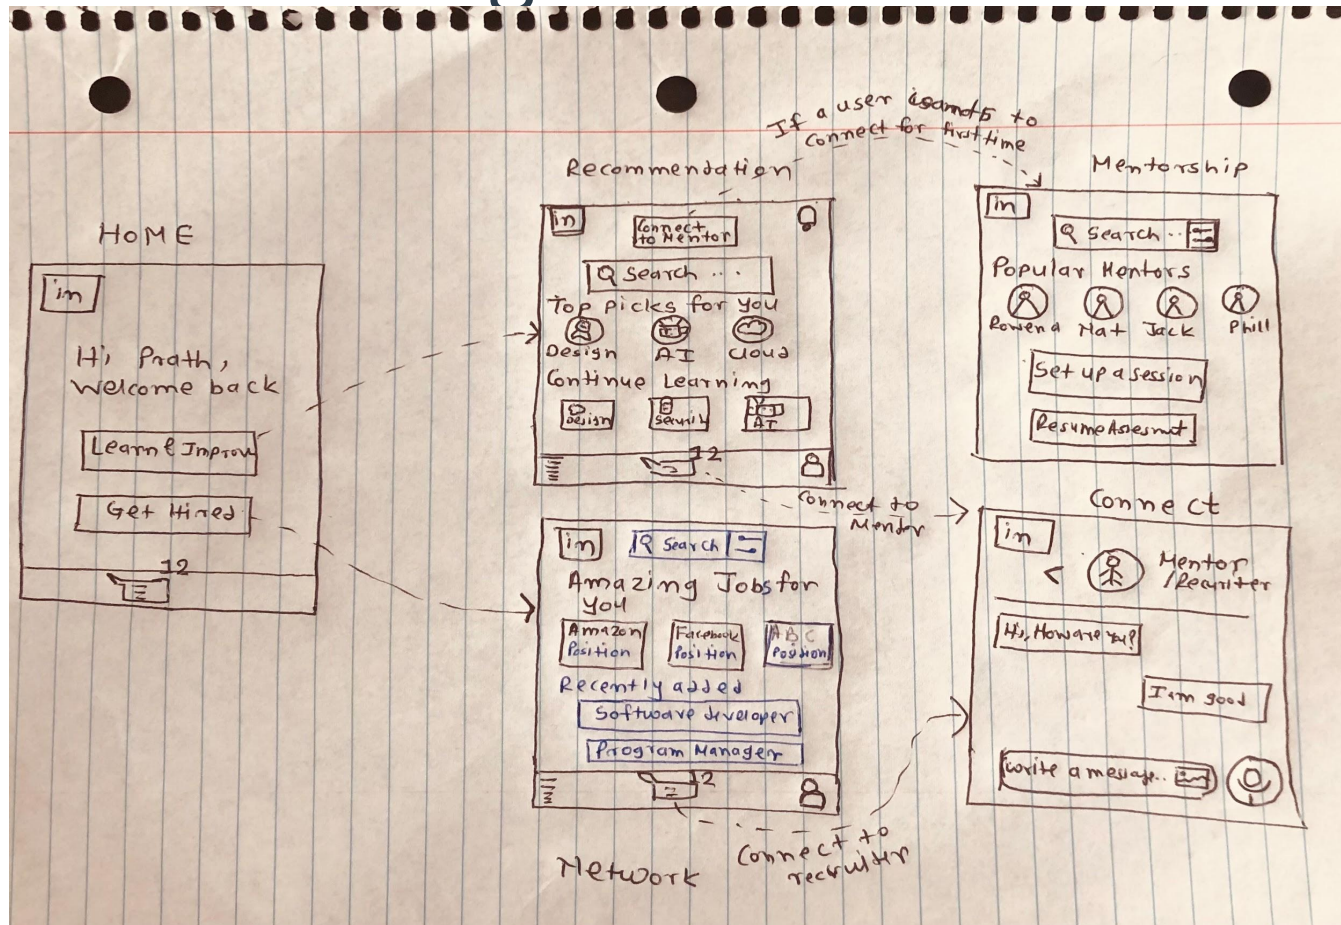 HOME
in
Hi, Prath,
Welcome back
Learn & Improv
Get Hired
12
Recommendation
If a user wants to
connect for first time
in
Connect
to Mentor
Search ...
Top picks for you
Design AI Cloud
Continue Learning
Design Security AI
12
Connect to
Mentor
in
Search
Amazing Jobs for
you
Amazon
Position
Facebook
Position
ABC
Position
Recently added
Software developer
Program Manager
12
Network
Connect to
recruiter
Mentorship
in
Search ..
Popular Mentors
Rowena Mat Jack Phill
Set up a session
Resume
Connect
in
<
Mentor
/Recruiter
Hi, How are you?
I am good
Write a message..